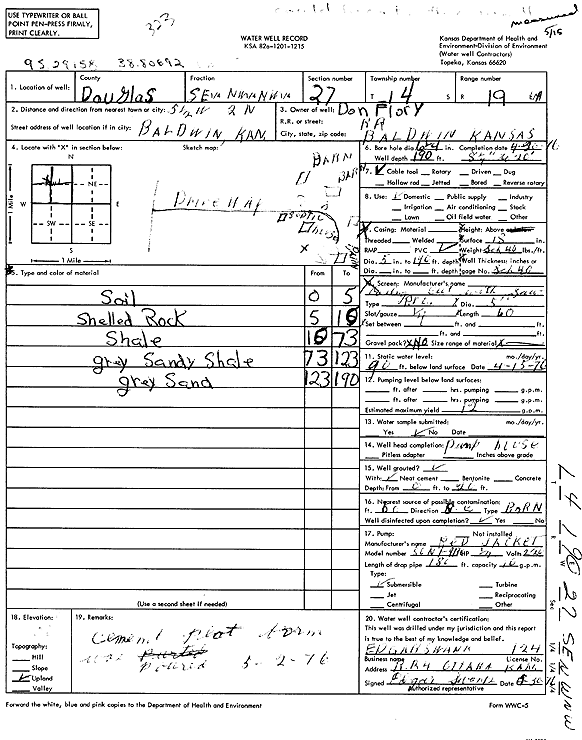 USE TYPEWRITER OR BALL
POINT PEN-PRESS FIRMLY,
PRINT CLEARLY.
measured
5/15
WATER WELL RECORD
KSA 82a-1201-1215
Kansas Department of Health and
Environment-Division of Environment
(Water well Contractors)
Topeka, Kansas 66620
95 29158 38.80692
1. Location of well:
County
Douglas
Fraction
SE¼ NW¼ NW¼
Section number
27
Township number
T 14 S
Range number
R 19
2. Distance and direction from nearest town or city: 2 N
Street address of well location if in city: BALDWIN KAN.
3. Owner of well: Don Flory
R.R. or street: RR
City, state, zip code: BALDWIN KANSAS
4. Locate with "X" in section below:
Sketch map:
N
NE
W
E
SW
SE
S
1 Mile
1 Mile
BARN
DRIVE WAY
SEPTIC
HOUSE
6. Bore hole dia. in. Completion date
Well depth 190 ft.
7. Cable tool Rotary Driven Dug
Hollow rod Jetted Bored Reverse rotary
8. Use: Domestic Public supply Industry
Irrigation Air conditioning Stock
Lawn Oil field water Other
9. Casing: Material Height: Above
Threaded Welded Surface 18 in.
RMP PVC Weight Sch 40 lbs./ft.
Dia. 5 in. to 190 ft. depth Wall Thickness: inches or
Dia. in. to ft. depth gage No. Sch 40
10. Screen: Manufacturer's name
Type PVC Dia. 5"
Slot/gauze Length 60
Set between ft. and ft.
ft. and ft.
Gravel pack? NO Size range of material
5. Type and color of material From To
Soil 0 5
Shelled Rock 5 10
Shale 10 73
grey Sandy Shale 73 123
grey Sand 123 190
(Use a second sheet if needed)
11. Static water level: mo./day/yr.
90 ft. below land surface Date 4-15-76
12. Pumping level below land surfaces:
ft. after hrs. pumping g.p.m.
ft. after hrs. pumping g.p.m.
Estimated maximum yield 12 g.p.m.
13. Water sample submitted: mo./day/yr.
Yes No Date
14. Well head completion: Pump house
Pitless adapter Inches above grade
15. Well grouted?
With: Neat cement Bentonite Concrete
Depth: From 0 ft. to ft.
16. Nearest source of possible contamination:
ft. Direction Type BARN
Well disinfected upon completion? Yes No
17. Pump: Not installed
Manufacturer's name RED JACKET
Model number HP Volts
Length of drop pipe 186 ft. capacity 10 g.p.m.
Type:
Submersible Turbine
Jet Reciprocating
Centrifugal Other
18. Elevation:
Topography:
Hill
Slope
Upland
Valley
19. Remarks:
Cement plat form
was poured 5-2-76
20. Water well contractor's certification:
This well was drilled under my jurisdiction and this report
is true to the best of my knowledge and belief.
124
Business name License No.
Address RR4 OTTAWA KAN
Signed Date
Authorized representative
Forward the white, blue and pink copies to the Department of Health and Environment
Form WWC-5
T R W Sec ¼ ¼ ¼
27 SE NW NW